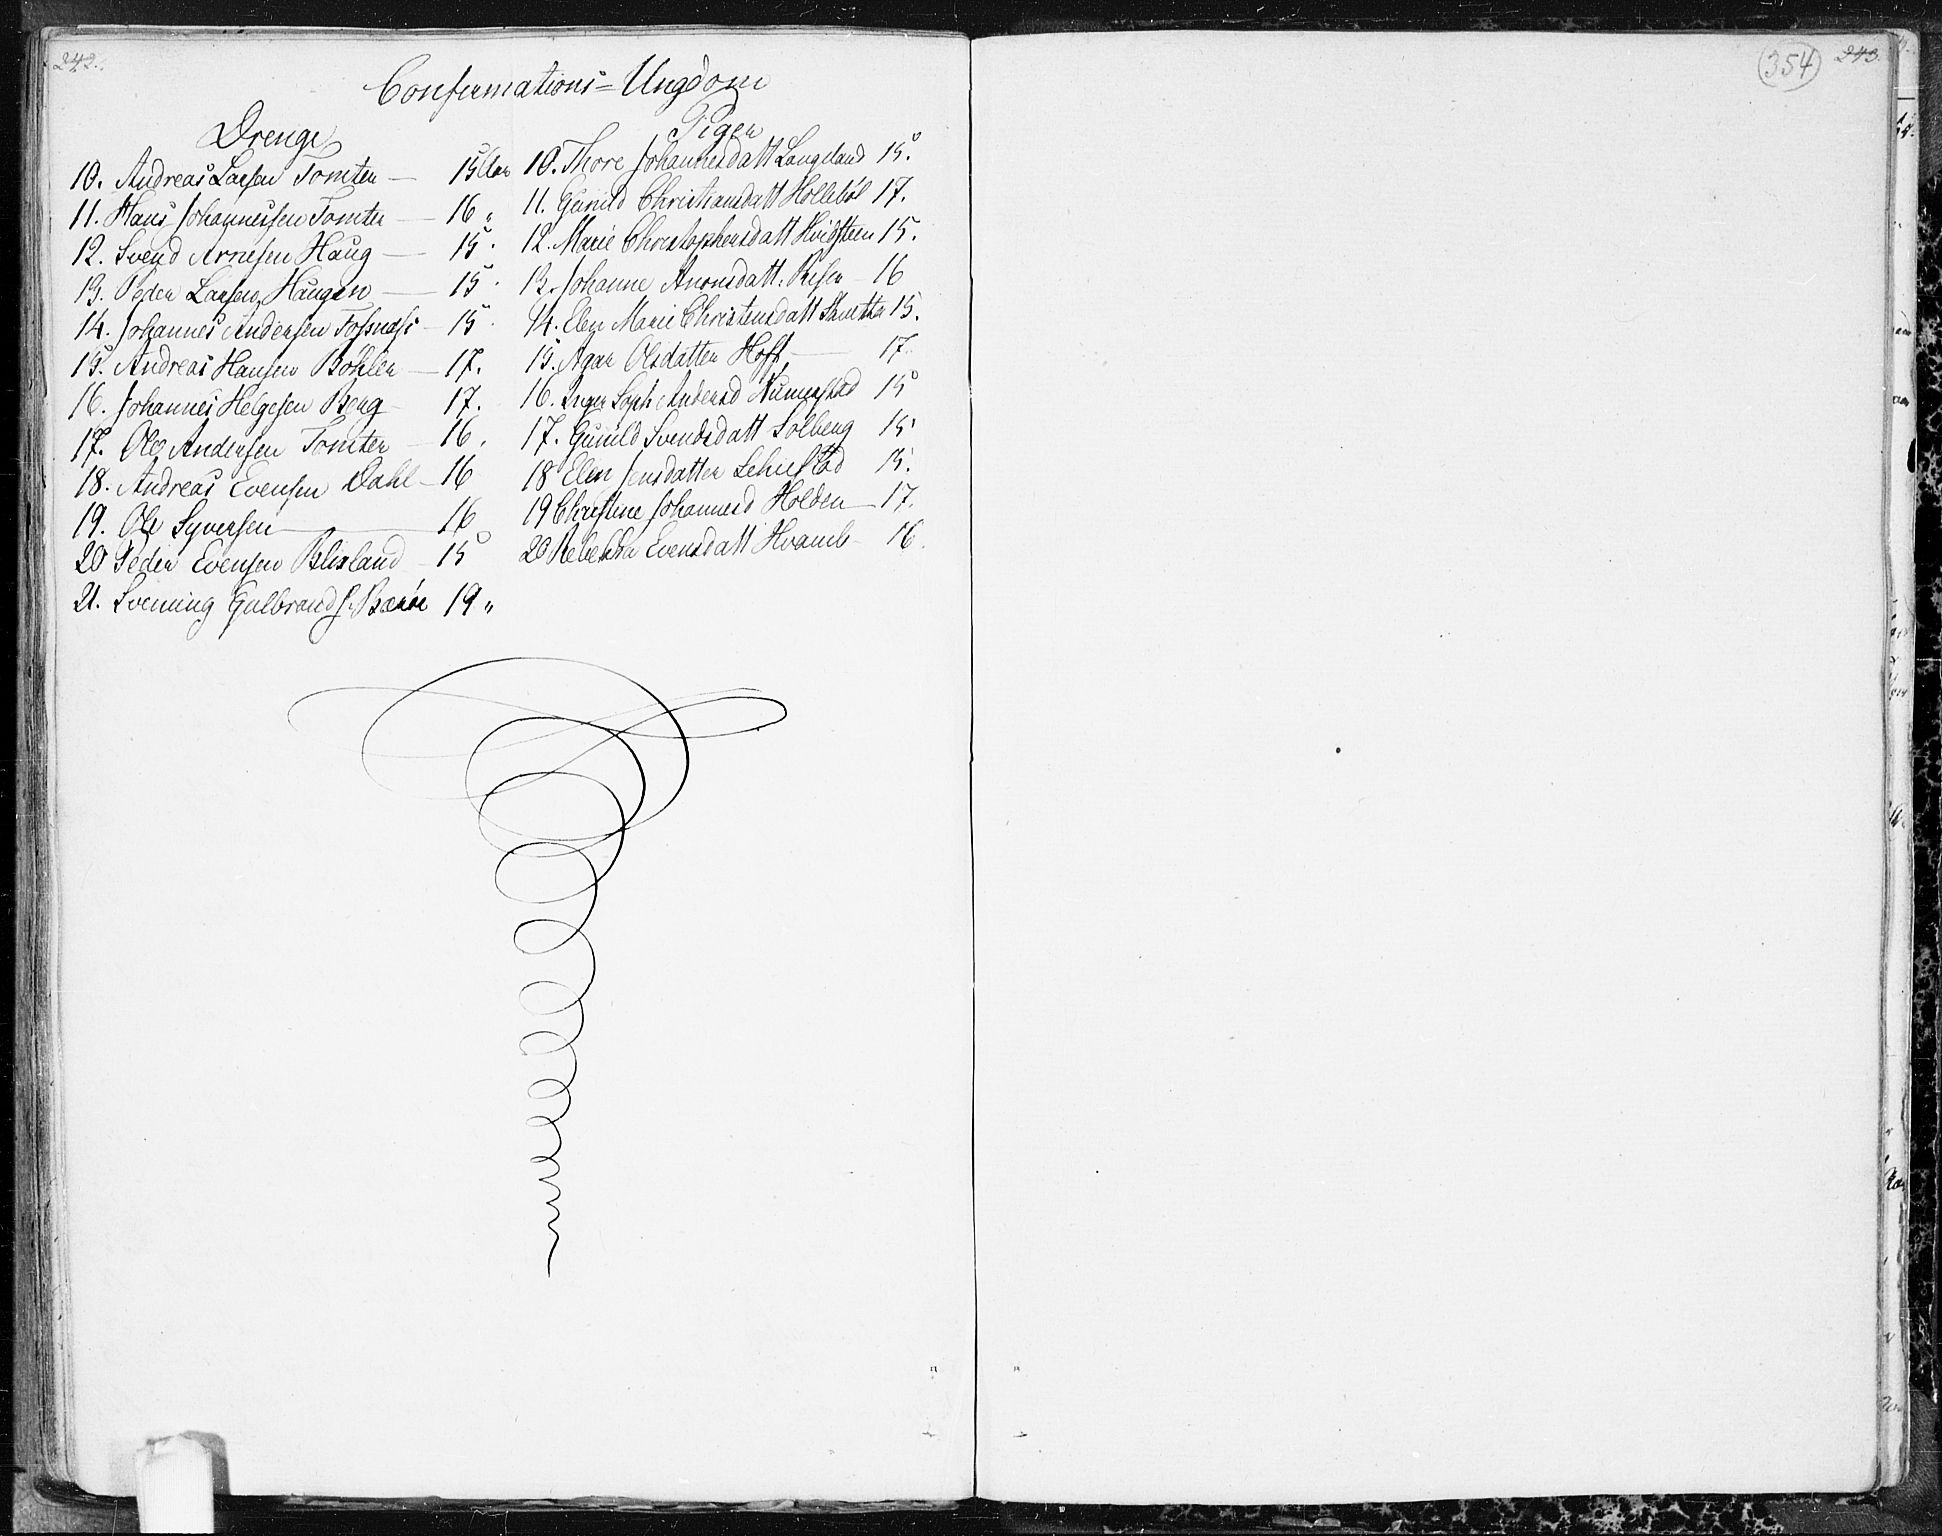 242.
Confirmations=Ungdom
Drenge
10. Andreas Larsen Tomter — 15 Aar
11. Hans Johannessen Tomter — 16 "
12. Svend Arnesen Haug — 15.
13. Peder Larsen Haugen — 15.
14. Johannes Andersen — 15.
15. Andreas Hansen Böhler — 17.
16. Johannes Helgesen Berg 17.
17. Ole Andersen Tomter — 16.
18. Andreas Evensen Dahl — 16
19. Ole Syversen — 16
20 Peder Evensen Blixland 15
21. Svenning Gulbrands. 19 "
Piger
10. Thore Johannesdatt Langeland 15.
11. Gunild Christiansdatt Holleböl 17.
12. Marie Christophersdatt Hvidsteen 15.
13. Johanne Anonsdatt. — 16
14. Elen Marie Christensdatt 15.
15. Agar Olsdatter Hoff — 17.
16. Inger Soph: Andersd 15
17. Gunild Svendsdatt Solberg 15
18 Elen Jensdatter 15.
19 Christine Johannesd Holden — 17.
20 Rebekka Evensdatt Hvamb — 16.
(354) 243.